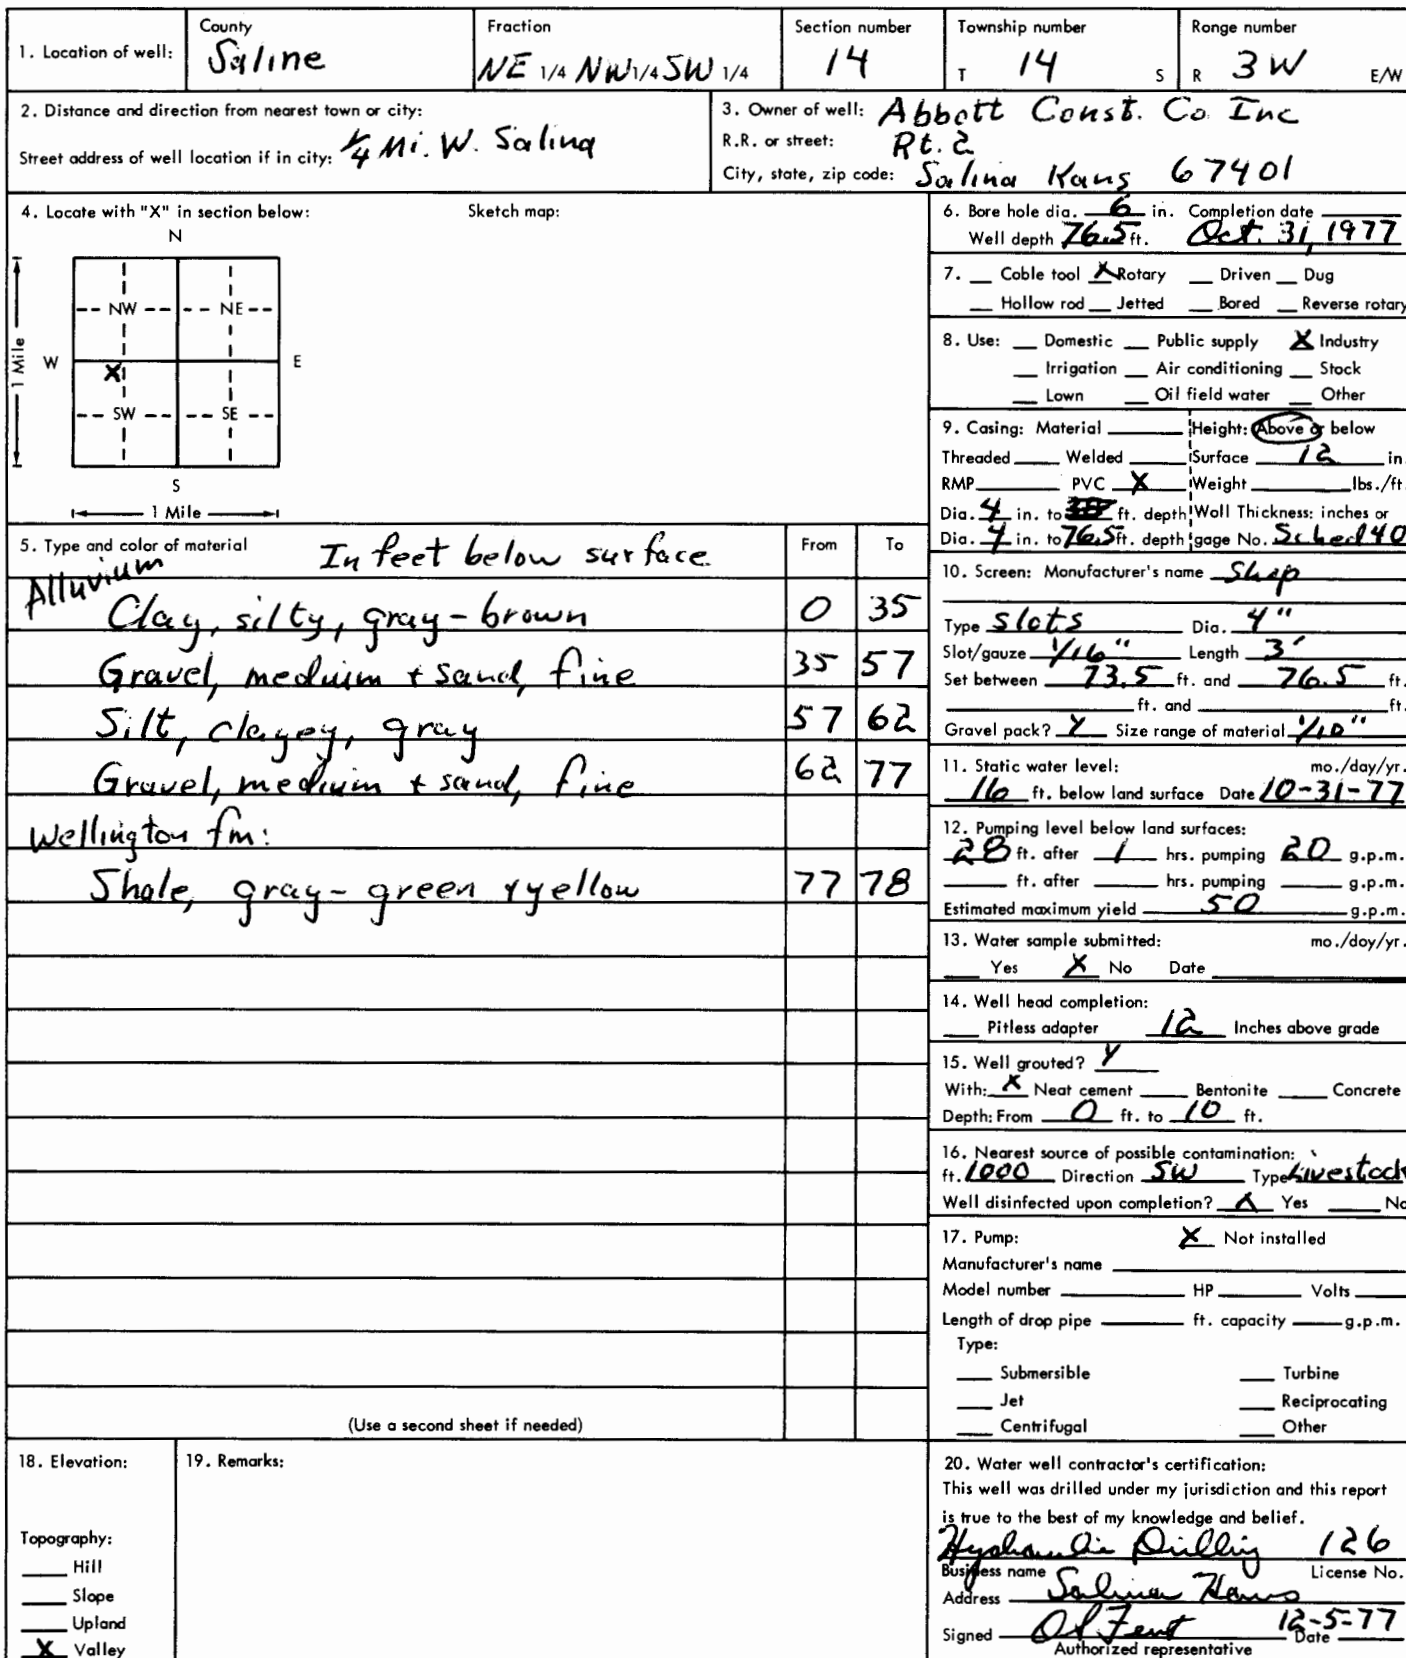 1. Location of well: County Saline Fraction NE 1/4 NW 1/4 SW 1/4 Section number 14 Township number T 14 S Range number R 3W E/W
2. Distance and direction from nearest town or city:
Street address of well location if in city: 1/4 Mi. W. Salina
3. Owner of well: Abbott Const. Co Inc
R.R. or street: Rt. 2
City, state, zip code: Salina Kans 67401
4. Locate with "X" in section below: Sketch map:
N
NW NE
1 Mile W E
X
SW SE
S
1 Mile
5. Type and color of material In feet below surface From To
Alluvium
Clay, silty, gray-brown 0 35
Gravel, medium + sand, fine 35 57
Silt, clayey, gray 57 62
Gravel, medium + sand, fine 62 77
Wellington fm:
Shale, gray-green + yellow 77 78
(Use a second sheet if needed)
6. Bore hole dia. 6 in. Completion date
Well depth 76.5 ft. Oct. 31, 1977
7. __ Cable tool X Rotary __ Driven __ Dug
__ Hollow rod __ Jetted __ Bored __ Reverse rotary
8. Use: __ Domestic __ Public supply X Industry
__ Irrigation __ Air conditioning __ Stock
__ Lawn __ Oil field water __ Other
9. Casing: Material ____ Height: Above or below
Threaded ____ Welded ____ Surface 12 in.
RMP ____ PVC X Weight ____ lbs./ft.
Dia. 4 in. to ft. depth Wall Thickness: inches or
Dia. 4 in. to 76.5 ft. depth gage No. Sched 40
10. Screen: Manufacturer's name Shop
Type slots Dia. 4"
Slot/gauze 1/16" Length 3'
Set between 73.5 ft. and 76.5 ft.
____ ft. and ____ ft.
Gravel pack? Y Size range of material 1/10"
11. Static water level: mo./day/yr.
16 ft. below land surface Date 10-31-77
12. Pumping level below land surfaces:
28 ft. after 1 hrs. pumping 20 g.p.m.
____ ft. after ____ hrs. pumping ____ g.p.m.
Estimated maximum yield 50 g.p.m.
13. Water sample submitted: mo./day/yr.
__ Yes X No Date ____
14. Well head completion:
__ Pitless adapter 12 Inches above grade
15. Well grouted? Y
With: X Neat cement ____ Bentonite ____ Concrete
Depth: From 0 ft. to 10 ft.
16. Nearest source of possible contamination:
ft. 1000 Direction SW Type Livestock
Well disinfected upon completion? X Yes ____ No
17. Pump: X Not installed
Manufacturer's name ____
Model number ____ HP ____ Volts ____
Length of drop pipe ____ ft. capacity ____ g.p.m.
Type:
__ Submersible __ Turbine
__ Jet __ Reciprocating
__ Centrifugal __ Other
18. Elevation:
Topography:
__ Hill
__ Slope
__ Upland
X Valley
19. Remarks:
20. Water well contractor's certification:
This well was drilled under my jurisdiction and this report
is true to the best of my knowledge and belief.
Hydraulic Drilling 126
Business name License No.
Address Salina Kans
Signed O S Fent 12-5-77
Authorized representative Date